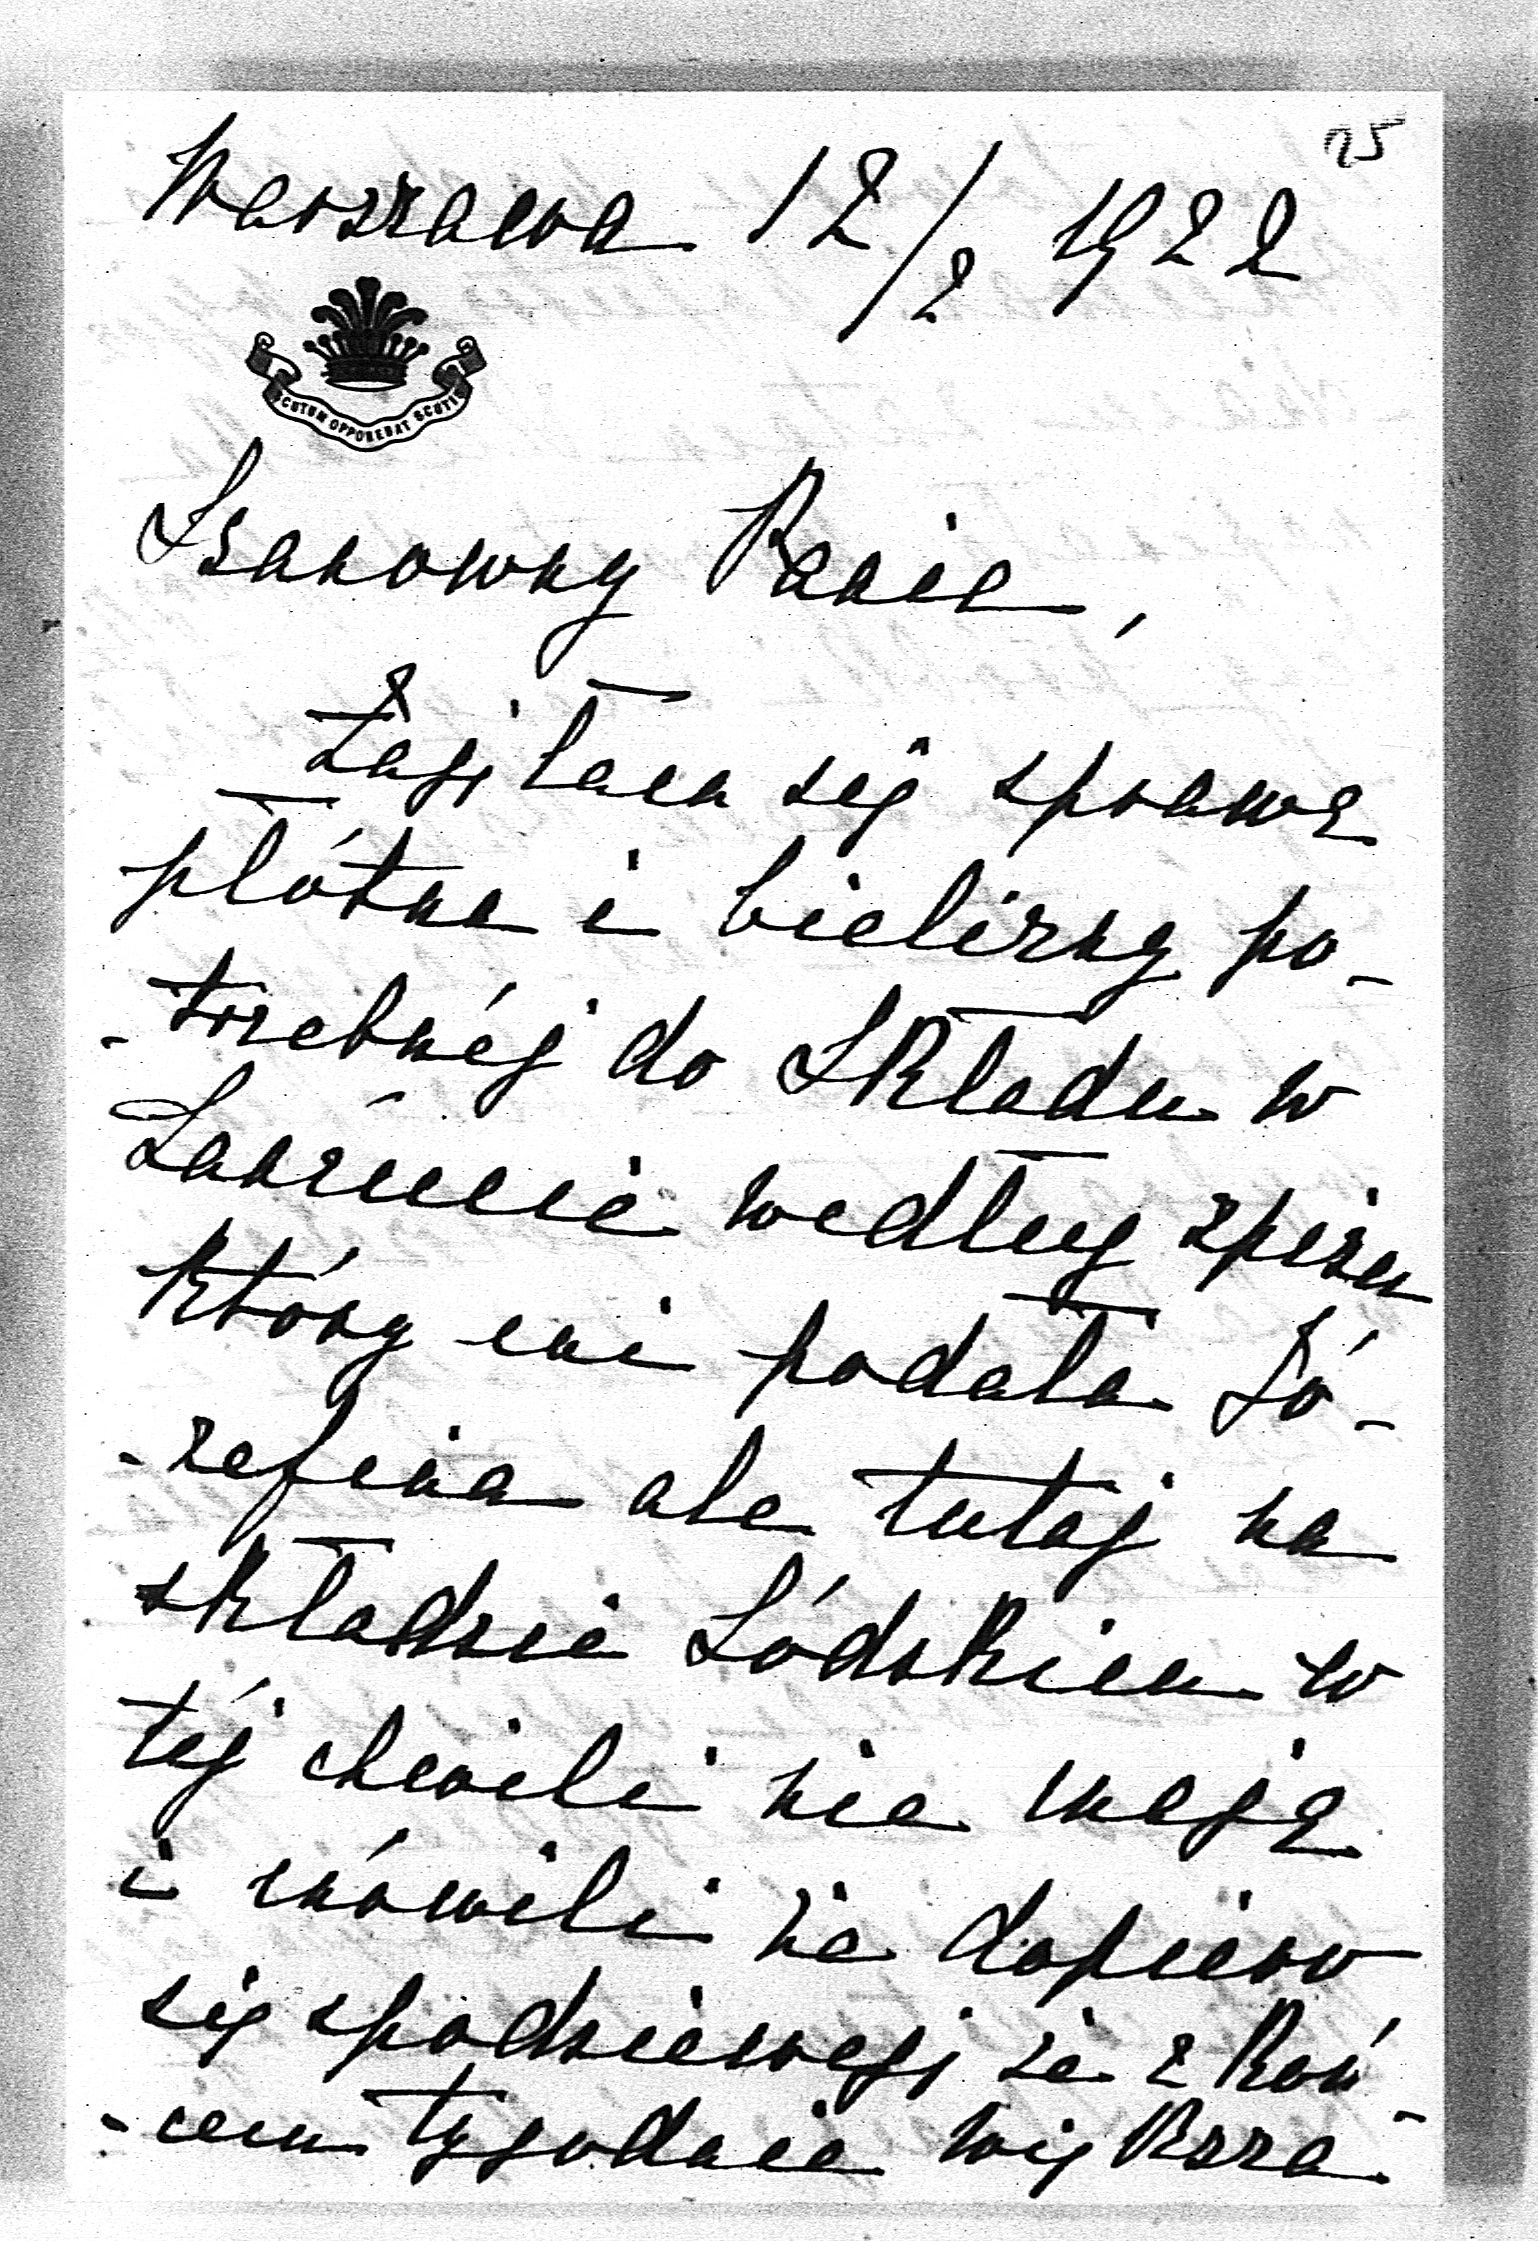 25
Warszawa 12/2 1922
SCUTUM OPPONEBAT SCUTIS
Szanowny Panie,
Zajęłam się sprawą
płótna i bielizny po-
-trzebnéj do Składu w
Łańcucie według spisu
który mi podała Jó-
-zefina ale tutaj na
składzie Łódzkiem w
téj chwili nie mają
i mówili że dopiero
się spodziewają że z koń-
-cem tygodnia większa